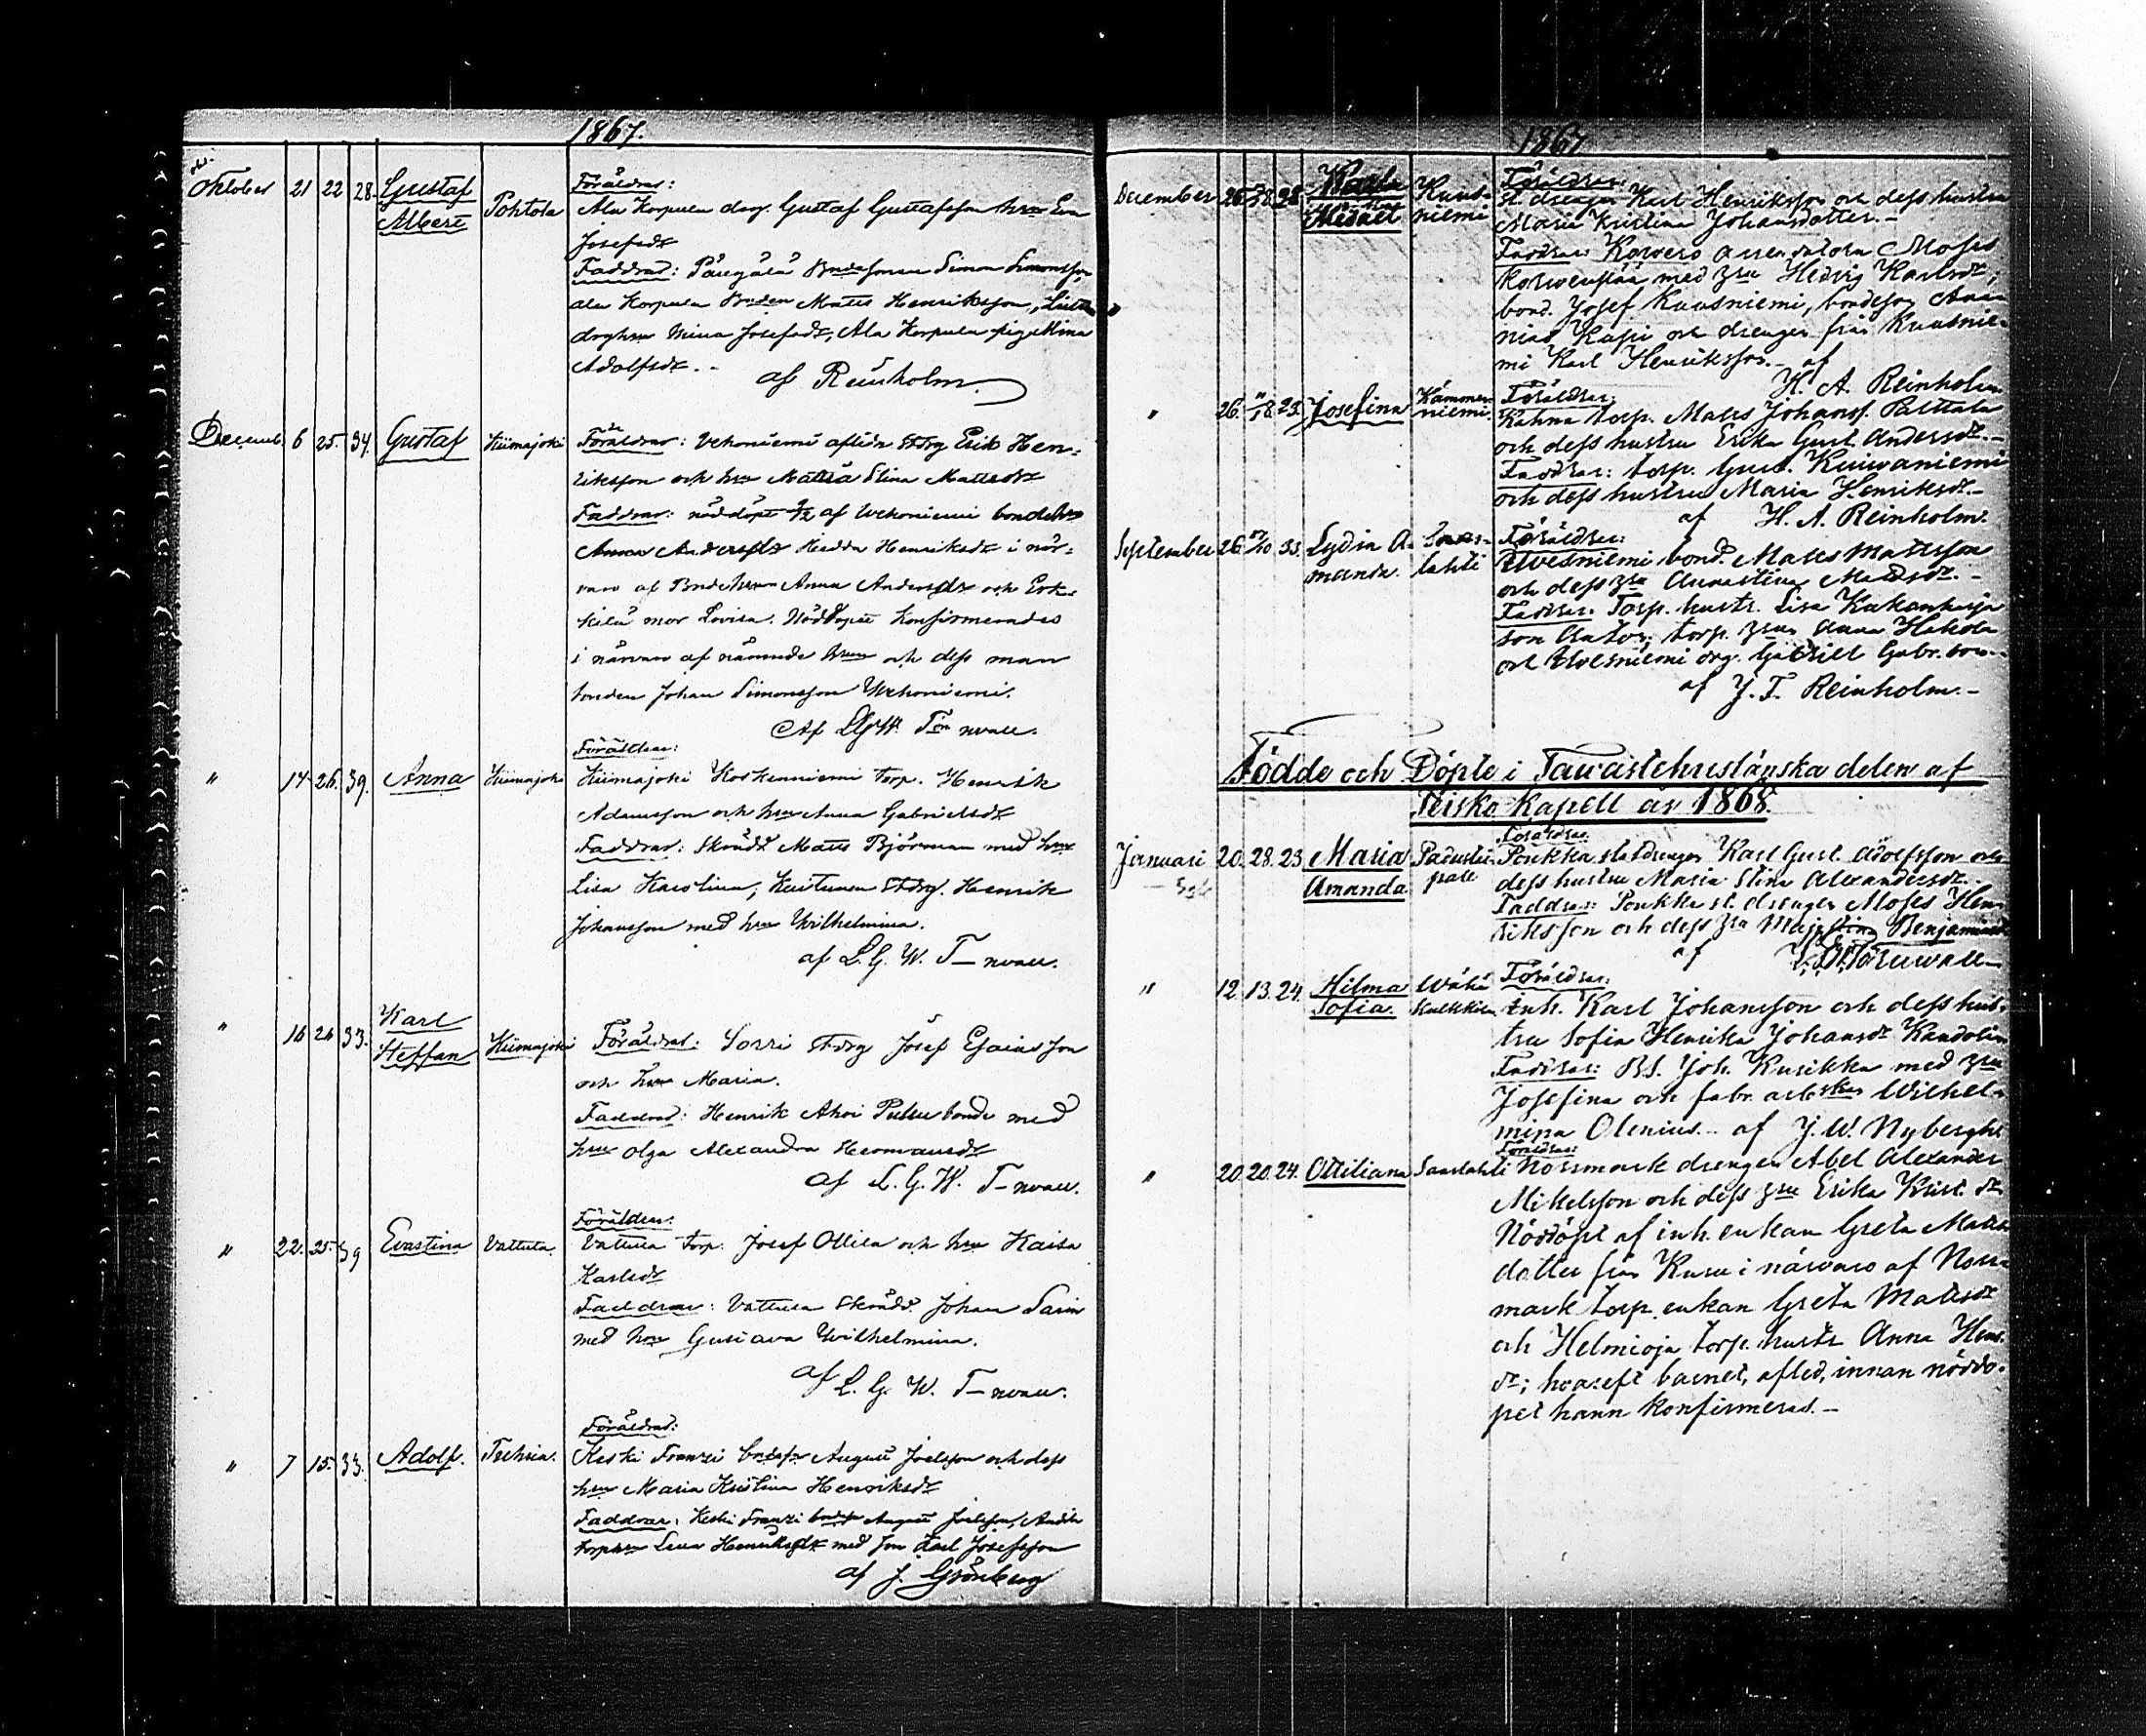 1867.
Oktober 21 22 28. Gustaf Albert Pohtola Föräldrar:
Ala Korpula drg. Gustaf Gustafsson hru Eva
Josefsdr
Faddrar: Simon Simonsson,
Ala Korpula Bonden Matts Henriksson,
drghru Mina Josefsdr, Ala Korpula pig. Mina
Adolfsdr. -
af Reinholm.
Decemb. 6 25. 34. Gustaf Kiimajoki Föräldrar: Vehoniemi aflidn Stdrg Erik Hen-
riksson och hru Maria Stina Mattsdr
Faddrar: nöddöpt af Wehoniemi bondehru
Anna Andersdr Hedda Henriksdr i när-
varo af Bndehrun Anna Andersdr och
mor Lovisa. Nöddopet Konfirmerades
i närvaro af nämnde hru och dess man
bonden Johan Simonsson Wehoniemi.
Af LGW. T-nvall.
Föräldrar:
" 14 26. 39. Anna Kiimajoki Kiimajoki Koskenniemi torp. Henrik
Adamsson och hru Anna Gabrielsdr
Faddrar: Skrädd Matts Björnman med hru
Lisa Karolina, Stdrg. Henrik
Johansson med hru Wilhelmina.
af L. G. W. T-nvall.
" 16 26 33. Karl Steffan Kiimajoki Föräldrar: Sorri Stdrg Josef Esaiasson
och hru Maria.
Faddrar: Henrik Ahoi Pulsu bonde med
hru Olga Alexandra Hermansdr
af L. G. W. T-nvall.
Föräldrar:
" 22. 25. 39 Evastina Vattula. Vattula torp. Josef Ollila och hru Kaisa
Karlsdr
Faddrar: Vattula Skrädd. Johan Sarin
med hru Gustava Wilhelmina.
af L. G. W. T-nvall.
Föräldrar:
" 7 15. 33. Adolf. Keski Franzi August Joelsson och dess
hru Maria Kristina Henriksdr
Faddrar: Keski Franzi August Joelsson,
torphru Lena Henriksdr med son Karl Josefsson
af J. Grönberg
1867
December 26. 28. 28. Kuusniemi Föräldrar:
St. drengen Karl Henriksson och dess hustru
Maria Kristina Johansdotter. -
Faddrar: Korvero arrendatorn Moses
Korvenpää med hru Hedvig Karlsdr,
bond. Josef Kuusniemi, bondeson Ana-
nias Kaspi och drengen från Kuusnie-
mi Karl Henriksson. - af
H. A. Reinholm
" 26. 28. 23. Josefina Kämmenniemi. Föräldrar:
Kahna torp. Matts Johanss. Palttala
och dess hustru Erika Gust. Andersdr. -
Faddrar: torp. Gust. Kuivaniemi
och dess hustru Maria Henriksdr. -
af H. A. Reinholm.
September 26. 33. Lydia Amanda. lahti Föräldrar:
bond. Matts Mattsson
och dess hru Annastina Mattsdr. -
Faddrar: Torp. hustr. Lisa
son Anton; torp. hru Anna Hakola
och drg. Gabriel Gabr.son. -
af J. F. Reinholm. -
Födde och Döpte i Tawastehuslänska delen af
Teisko Kapell år 1868.
Föräldrar.
Januari 20. 28. 23 Maria Amanda Padustaipale Poukka statdrengen Karl Gust. Adolfsson och
dess hustru Maria Stina Alexandersdr. -
Faddrar: Poukka st. drengen Moses Hen-
riksson och dess hru Majastina Benjaminsdr
af L. G. W. Törnwall
" 12. 13. 24. Hilma Sofia. Wähä Föräldrar:
Inh. Karl Johansson och dess hus-
tru Sofia Henrika Johansdr Kandolin
Faddrar: Bs. Joh. Kusikka med hru
Josefina och fabr. arb.skan Wilhel-
mina Olenius. - af J. W. Nybergh.
Föräldrar:
" 20. 20. 24. Ottiliana Saarlahti Norrmark drengen Abel Alexander
Mikelsson och dess hru Erika Krist. dr
Nöddöpt af inh. enkan Greta Matts
dotter från Kuru i närvaro af Norr-
mark torp. enkan Greta Mattsdr
och Helmioja torp. hustr. Anna Henr.
dr; hvareft barnet, afled, innan nöddo-
pet hann konfirmeras. -